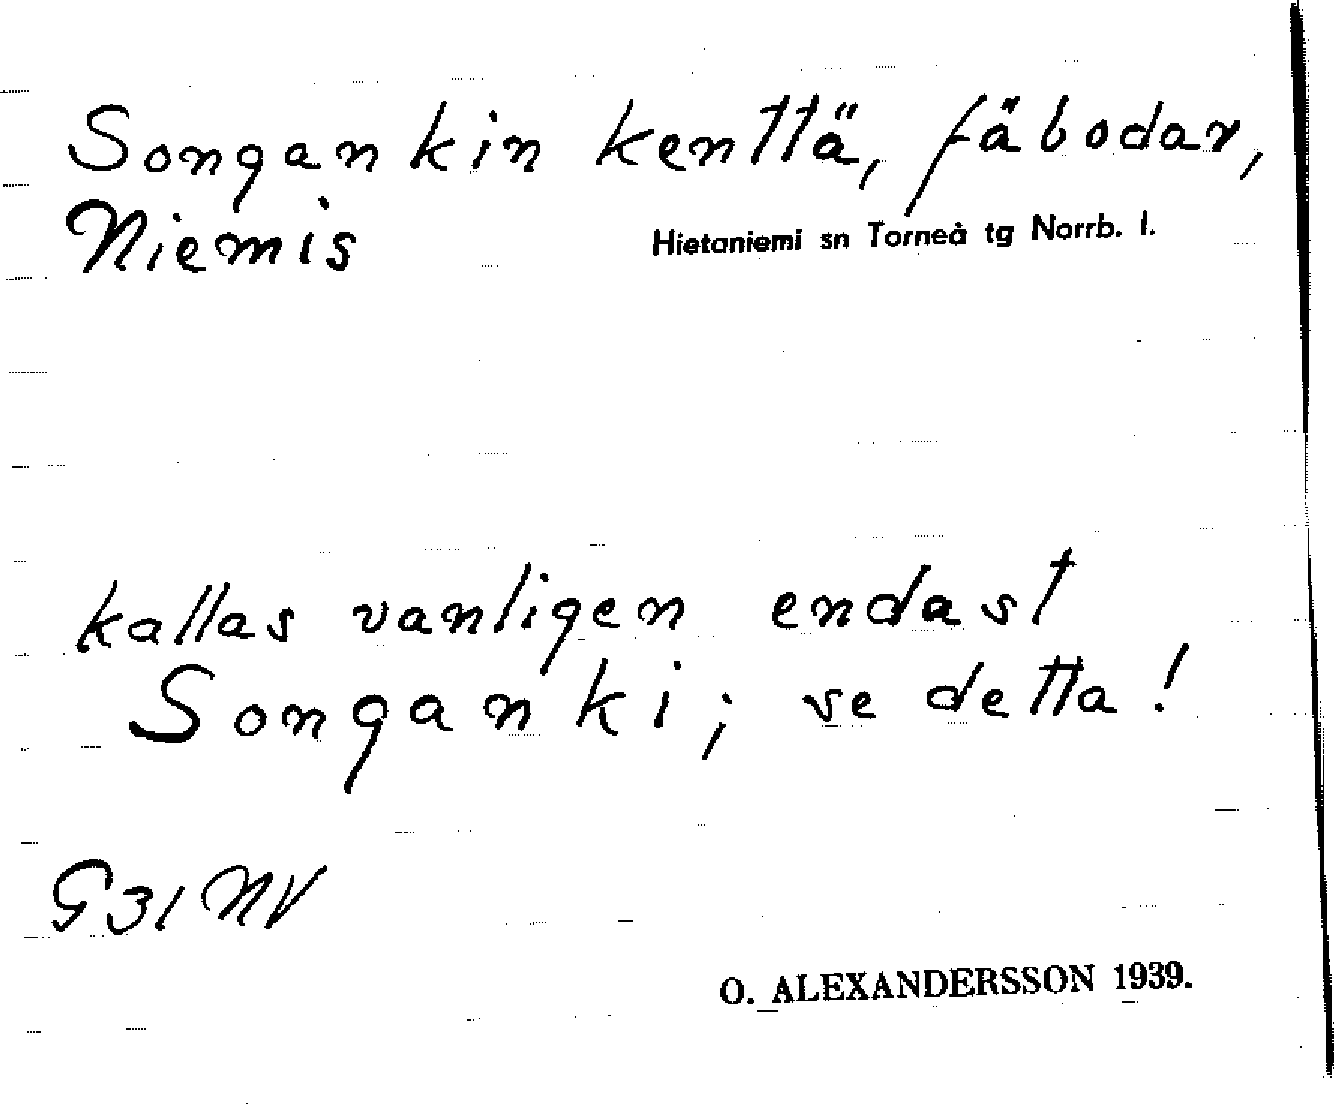 Songankin kenttä, fäbodar,
Niemis
Hietaniemi sn Torneå tg Norrb. l.
kallas vanligen endast
Songanki; se detta!
G 31 NV
O. ALEXANDERSSON 1939.